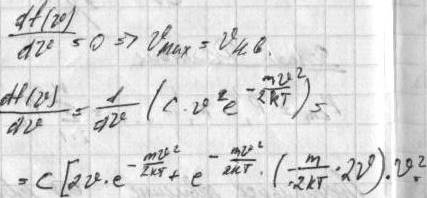 df(v)/dv = 0 => v_max = v_н.в.
df(v)/dv = d/dv (C · v² e^(-mv²/2kT)) =
= C [2v · e^(-mv²/2kT) + e^(-mv²/2kT) · (m/-2kT · 2v) · v²